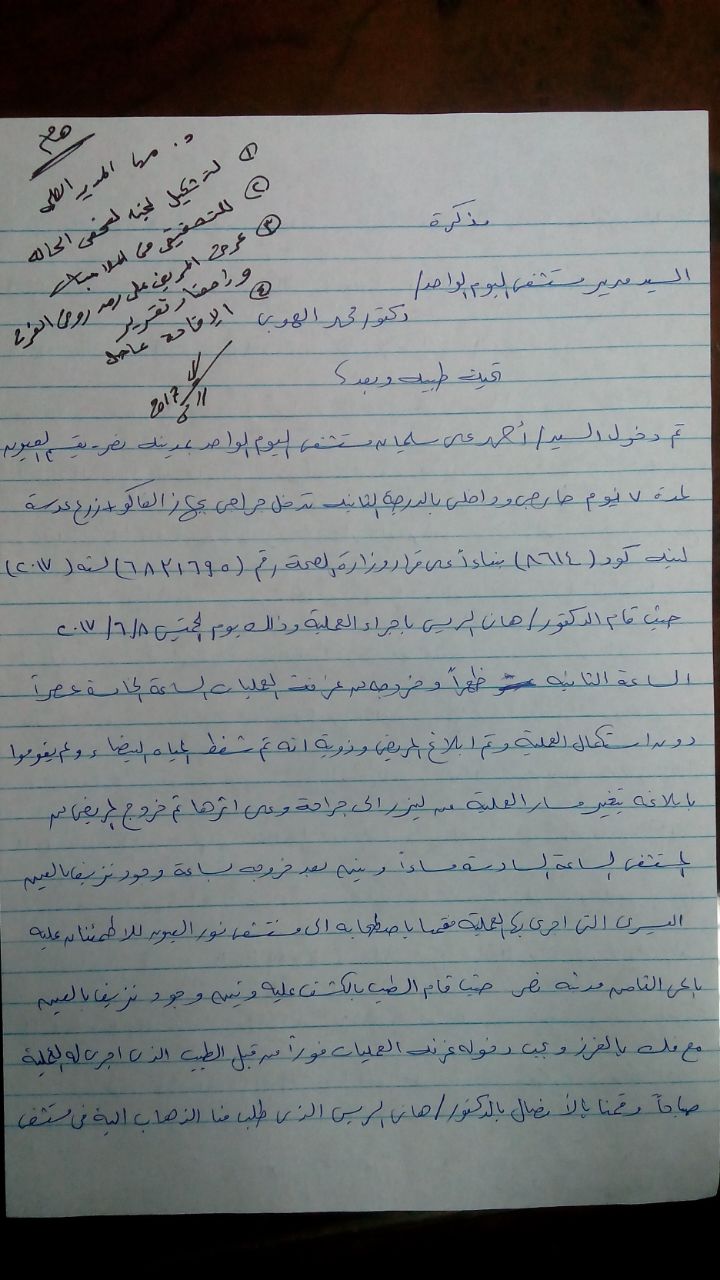 هام
د. مها المدير الطبى
① لتشكيل لجنه لفحص الحاله
② للتحقيق فى الملابسات
③ عرض المريض على رمد روض الفرج
واحضار تقرير
④ الإفادة عاجل
2017
مذكرة
السيد مدير مستشفى اليوم الواحد/
دكتور محمد
تحيه طيبه وبعد؟
تم دخول السيد/ أحمد على سليمان مستشفى اليوم الواحد بمدينه نصر- بقسم العيون
لمدة ٧ يوم خارجى وداخلى بالدرجة الثانيه تدخل جراحى بجهاز الفاكو + زرع عدسة
لينه كود (٨٦١٤) بناءاً على قرار وزارة الصحة رقم (٦٨٢١٦٩٥) لسنه (٢٠١٧)
حيث قام الدكتور/ هانى الريس باجراء العملية وذالك يوم الخميس ٢٠١٧/٦/٨
الساعة الثانيه ظهراً وخروجه من غرفت العمليات الساعة الخامسة عصراً
دون استكمال العملية وتم ابلاغ المريض وذوية انه تم شفط المياه البيضاء ولم يقوموا
بابلاغه بتغير مسار العملية من ليزر الى جراحة وعلى اثرها تم خروج المريض من
المستشفى الساعة السادسة مساءاً وتبين بعد خروجه بساعة وجود نزيف بالعين
اليسرى التى اجرى بها العملية فقمنا باصطحابه الى مستشفى نور العيون للاطمئنان عليه
بالحى الثامن مدينه نصر حيث قام الطبيب بالكشف عليه وتبين وجود نزيف بالعين
مع فك بالغرز ويجب دخوله غرفت العمليات فوراً من قبل الطبيب الذى اجرى له العملية
صباحاً وقمنا بالأتصال بالدكتور/ هانى الريس الذى طلب منا الذهاب الية فى مستشفى